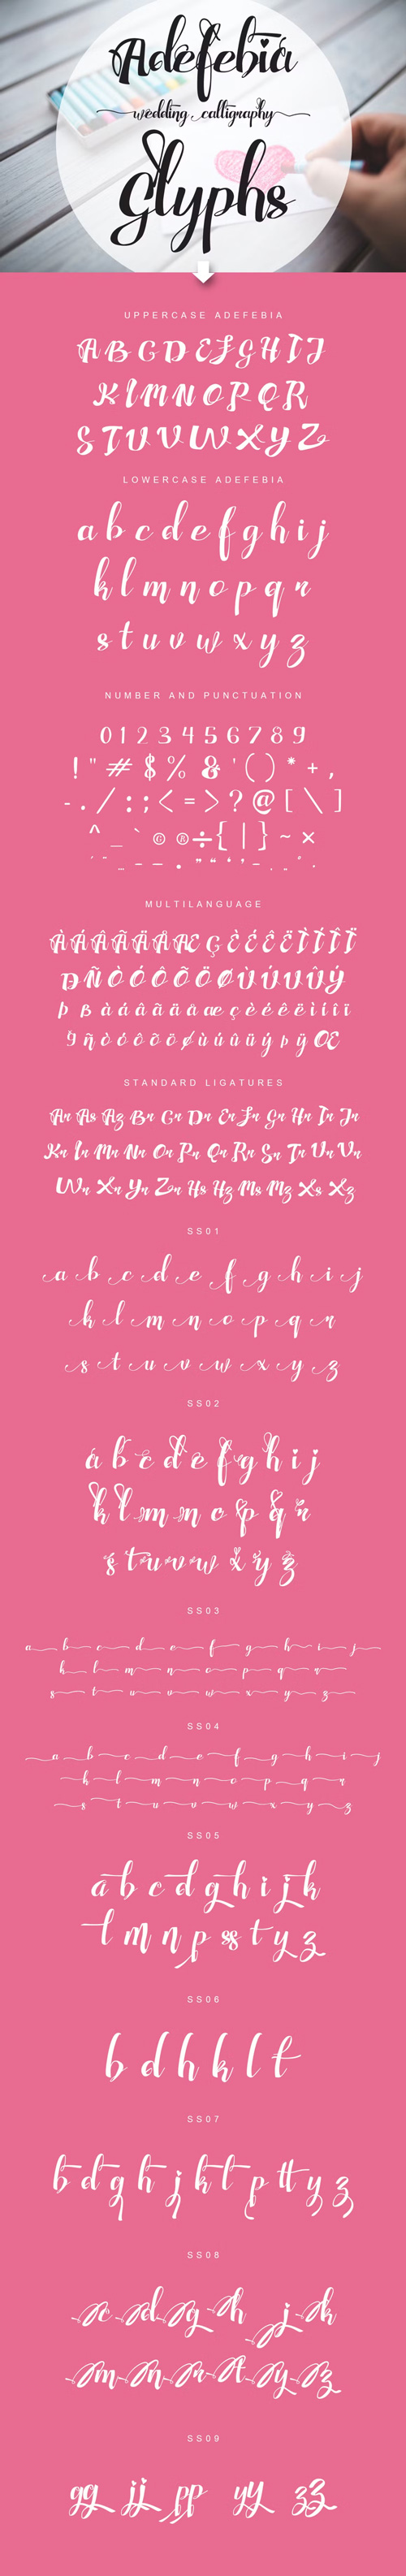 Adefebia
wedding calligraphy
Glyphs
UPPERCASE ADEFEBIA
A B C D E F G H I J
K L M N O P Q R
S T U V W X Y Z
LOWERCASE ADEFEBIA
a b c d e f g h i j
k l m n o p q r
s t u v w x y z
NUMBER AND PUNCTUATION
0 1 2 3 4 5 6 7 8 9
! " # $ % & ' ( ) * + ,
- . / : ; < = > ? @ [ \ ]
^ _ ` © ® ÷ { | } ~ ×
MULTILANGUAGE
À Á Â Ã Ä Å Æ Ç È É Ê Ë Ì Í Î Ï
Ð Ñ Ò Ó Ô Õ Ö Ø Ù Ú Û Ü Ý
Þ ß à á â ã ä å æ ç è é ê ë ì í î ï
ñ ò ó ô õ ö ø ù ú û ü ý þ ÿ Œ
STANDARD LIGATURES
Ar As Az Br Cr Dr Er Fr Gr Hr Ir Jr
Kr Lr Mr Nr Or Pr Qr Rr Sr Tr Ur Vr
Wr Xr Yr Zr Hs Hz Ms Mz Xs Xz
SS01
a b c d e f g h i j
k l m n o p q r
s t u v w x y z
SS02
a b c d e f g h i j
k l m n o p q r
s t u v w x y z
SS03
a b c d e f g h i j
k l m n o p q r
s t u v w x y z
SS04
a b c d e f g h i j
k l m n o p q r
s t u v w x y z
SS05
a b c d g h i j k
l m n p ss t y z
SS06
b d h k l t
SS07
b d g h j k l p tt y z
SS08
c d g h j k
m n r t y z
SS09
gg jj pp yy zz